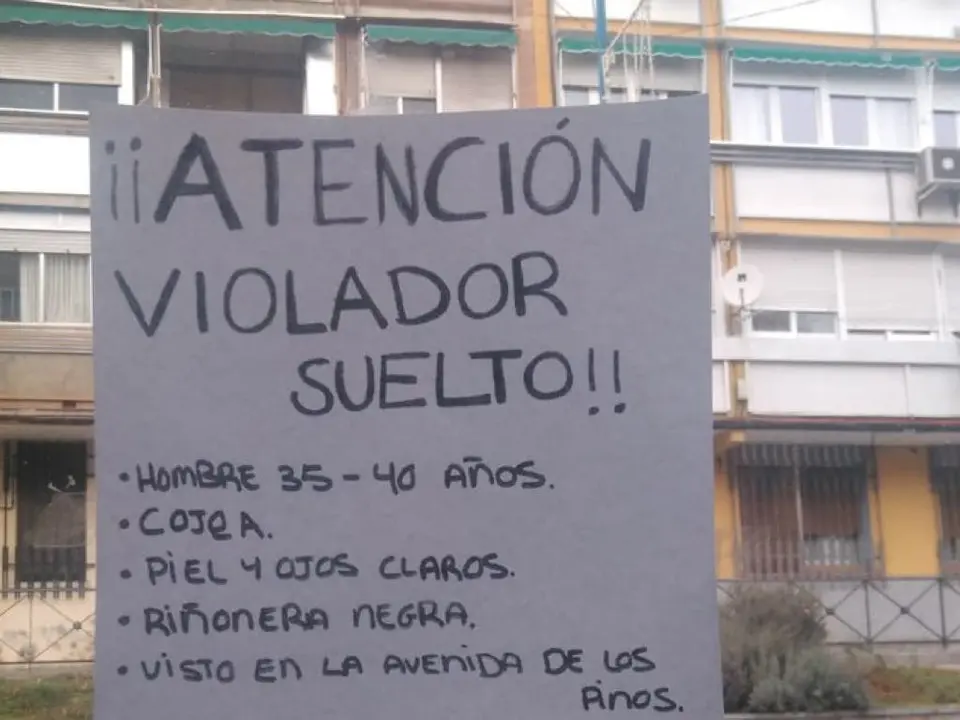 ¡¡ATENCIÓN
VIOLADOR
SUELTO!!
• HOMBRE 35-40 AÑOS.
• COJEA.
• PIEL Y OJOS CLAROS.
• RIÑONERA NEGRA.
• VISTO EN LA AVENIDA DE LOS
PINOS.